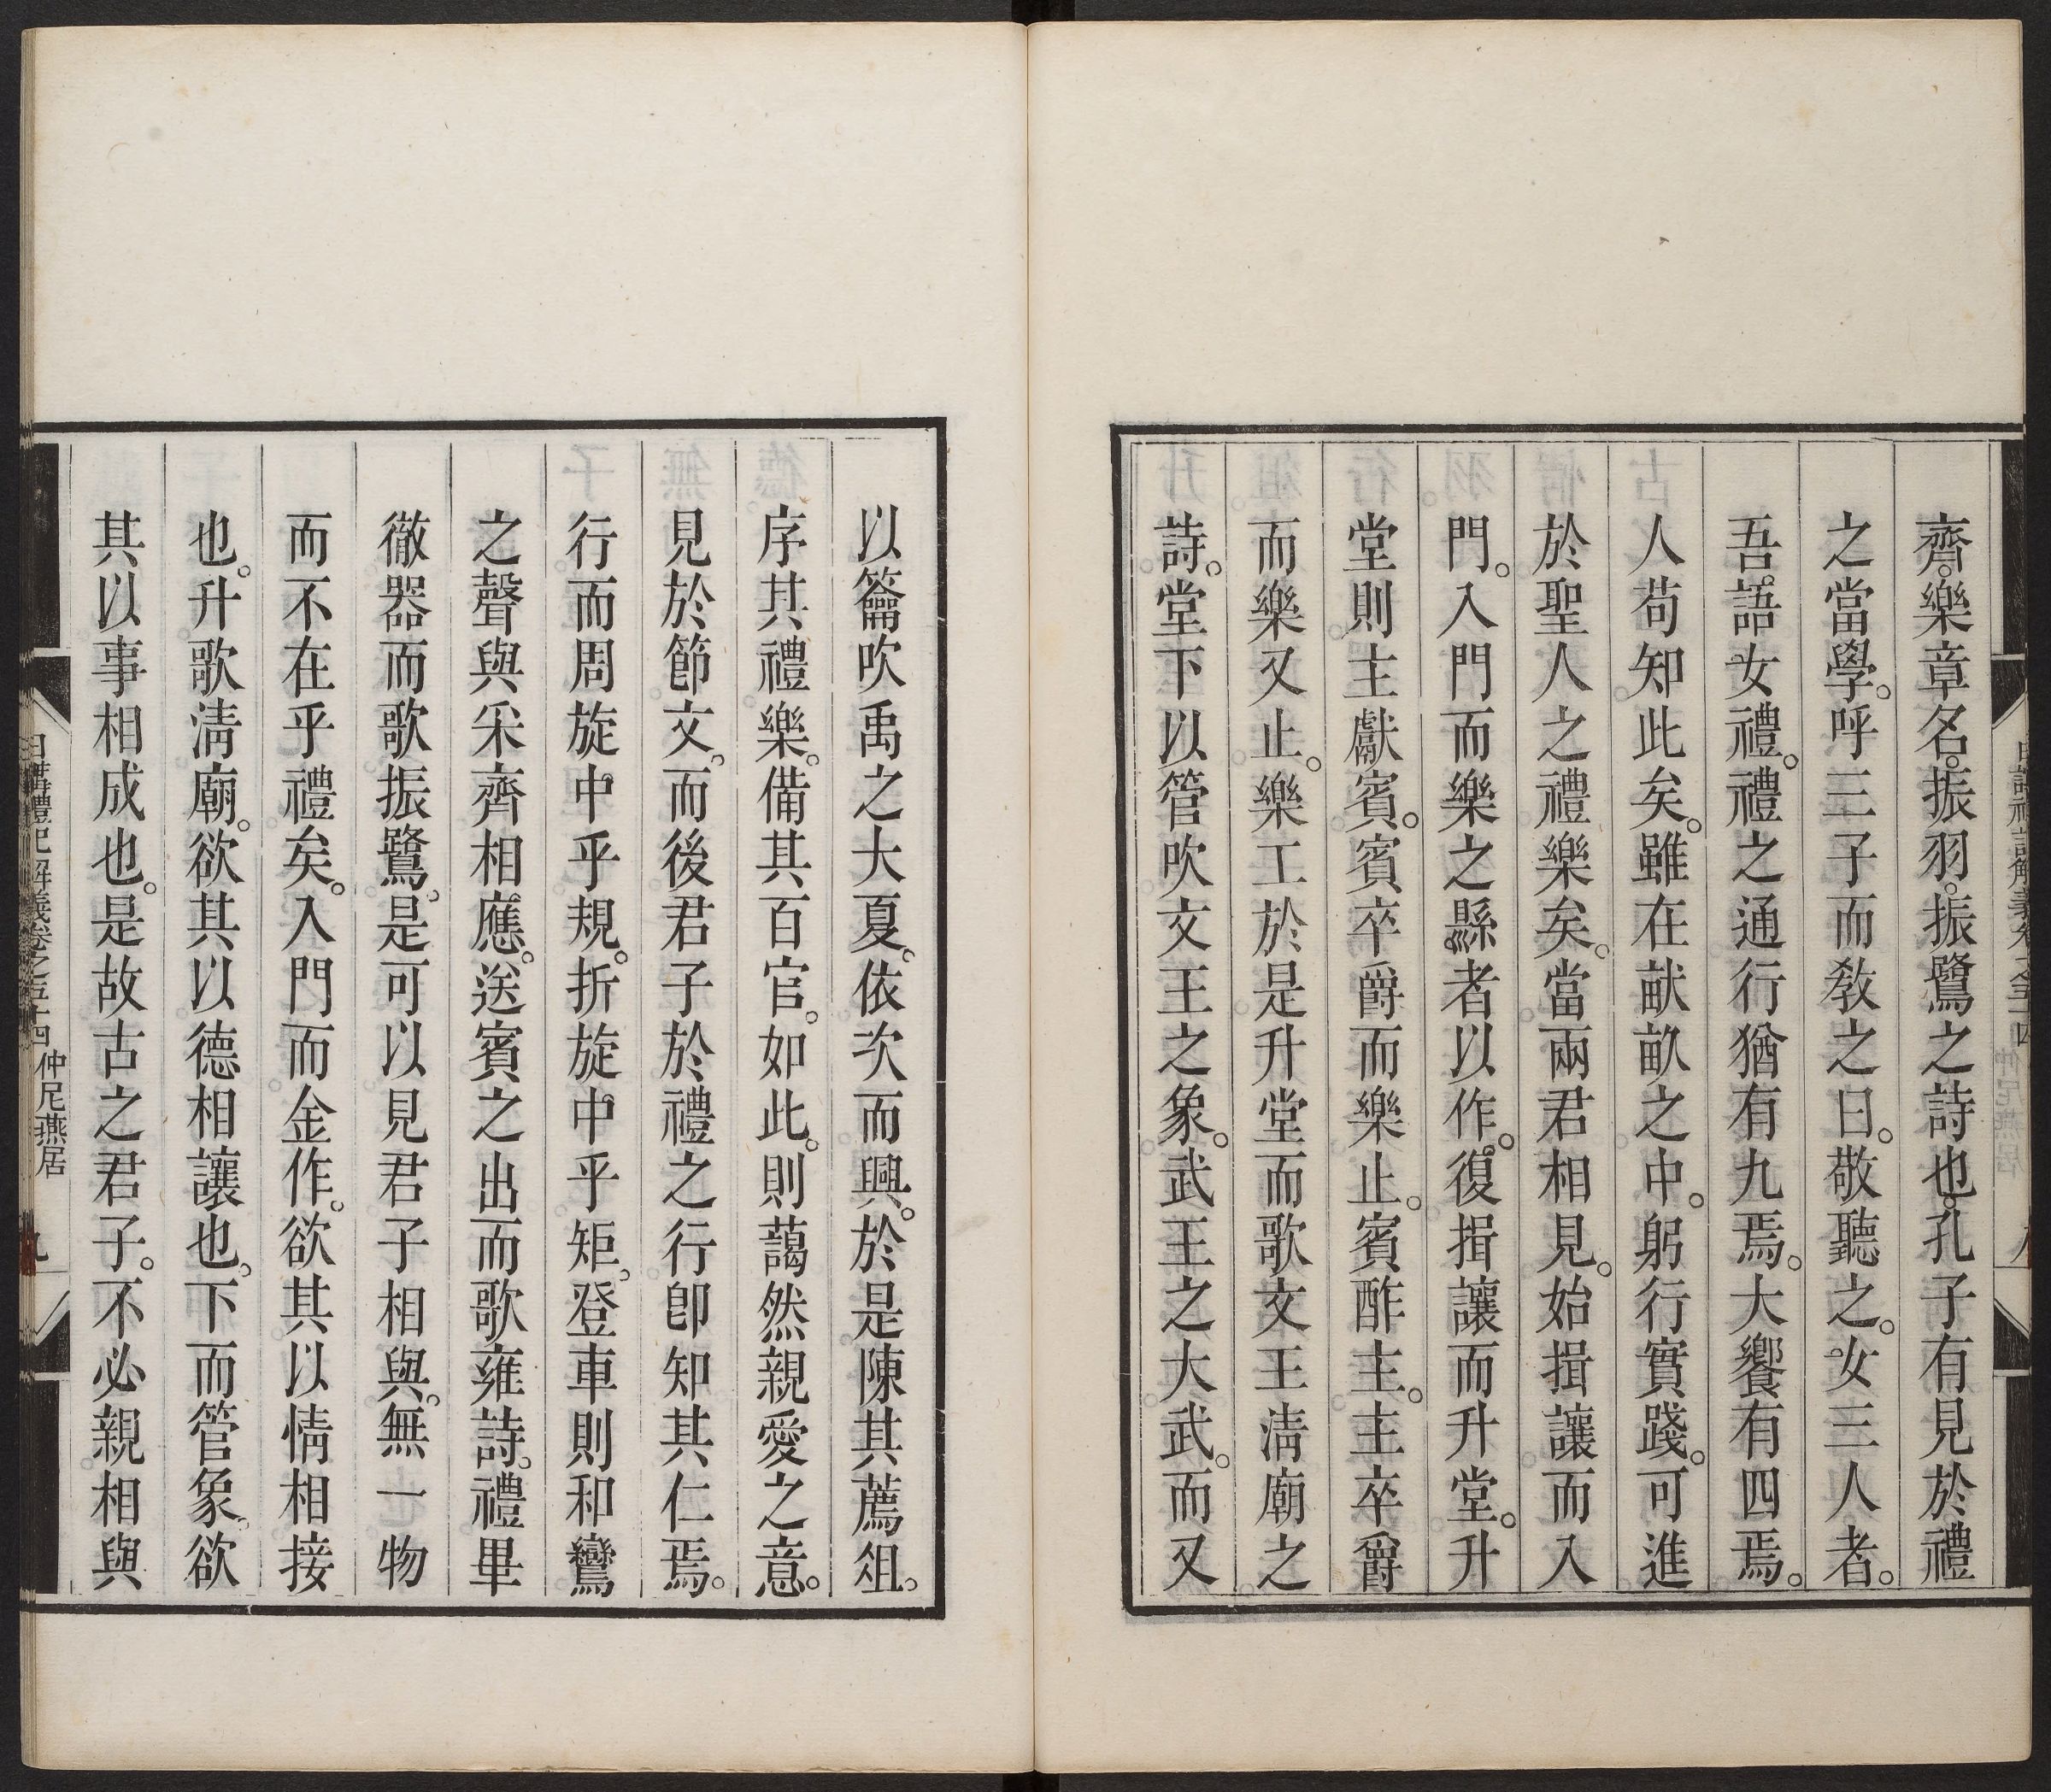 齊。樂章名。振羽。振鷺之詩也。孔子有見於禮
之當學。呼三子而敎之曰。敬聽之。女三人者。
吾語女禮。禮之通行猶有九焉。大饗有四焉。
人苟知此矣。雖在畎畝之中。躬行實踐。可進
於聖人之禮樂矣。當兩君相見。始揖讓而入
門。入門而樂之縣者以作。復揖讓而升堂。升
堂則主獻賓。賓卒爵而樂止。賓酢主。主卒爵
而樂又止。樂工於是升堂而歌文王淸廟之
詩。堂下以管吹文王之象。武王之大武。而又
以籥吹禹之大夏。依次而興。於是陳其薦俎。
序其禮樂。備其百官。如此。則藹然親愛之意。
見於節文。而後君子於禮之行卽知其仁焉。
行而周旋中乎規。折旋中乎矩。登車則和鸞
之聲與采齊相應。送賓之出而歌雍詩。禮畢
徹器而歌振鷺。是可以見君子相與。無一物
而不在乎禮矣。入門而金作。欲其以情相接
也。升歌淸廟。欲其以德相讓也。下而管象。欲
其以事相成也。是故古之君子。不必親相與
日講禮記解義卷之五十四 仲尼燕居 九